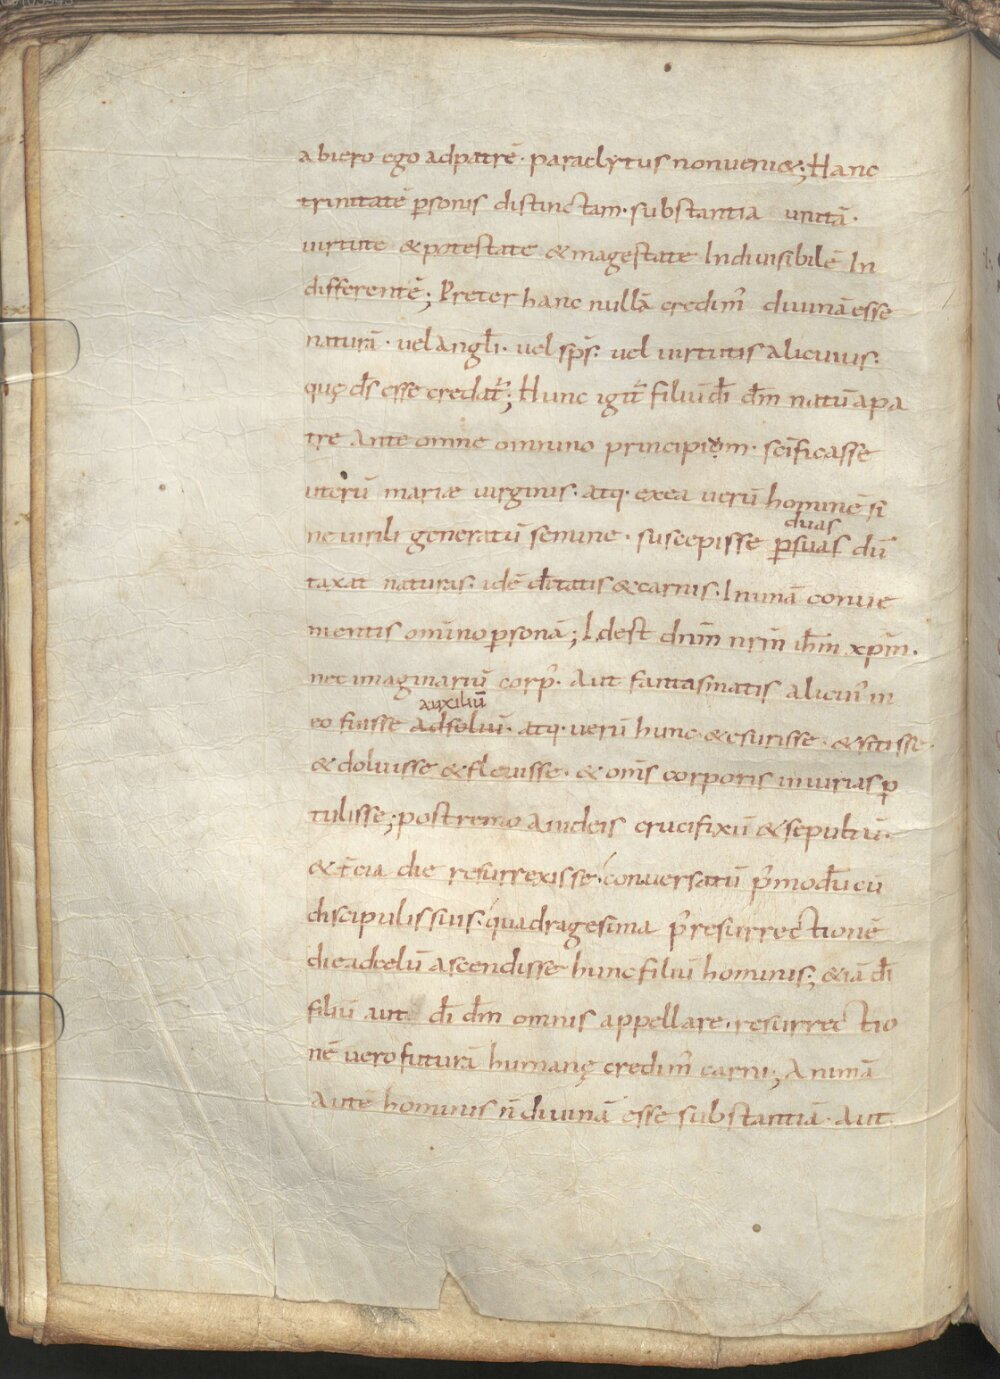 abiero ego adpatrē · paraclytus nonueni&; Hanc
trinitatē p̲sonis distinctam · substantia unitā ·
uirtute & potestate & magestate Indiuisibilē In
differentē; Preter hanc nullā credim᷒ diuinā esse
naturā · uel angl̄i · uel sp̄s · uel uirtutis alicuius ·
quę d̄s esse credat᷒; Hunc igit᷒ filiū d̄i d̄m natū apa
tre ante omne omnino principium · sc̄ificasse
uterū mariae uirginis · atq · exea uerū hominē si
duas
ne uirili generatū semine · suscepisse p̲suas dū
taxat naturas · idē d̄itatis & carnis · Inunā conue
nientis om̄ino p̲sonā; Idest dn̄m nr̄m ih̄m xp̄m ·
nec imaginariū corp᷒ · Aut fantasmatis alicui᷒ in
auxiliū
eo fuisse adsoluū · atq · uerū hunc & esurisse · & sitisse ·
& doluisse & fleuisse · & om̄s corporis iniurias p̲
tulisse; postremo aiudeis crucifixū & sepultū ·
& t̄cia die resurrexisse · conuersatū p᷒modū cū
discipulis suis · quadragesima p᷒ resurrectionē
die adcelū ascendisse hunc filiū hominis; & iā d̄i
filiū aut d̄i d̄m omnis appellare · resurrectio
nē uero futurā humanę credim᷒ carni; Animā
autē hominis n̄ diuinā esse substantiā · Aut